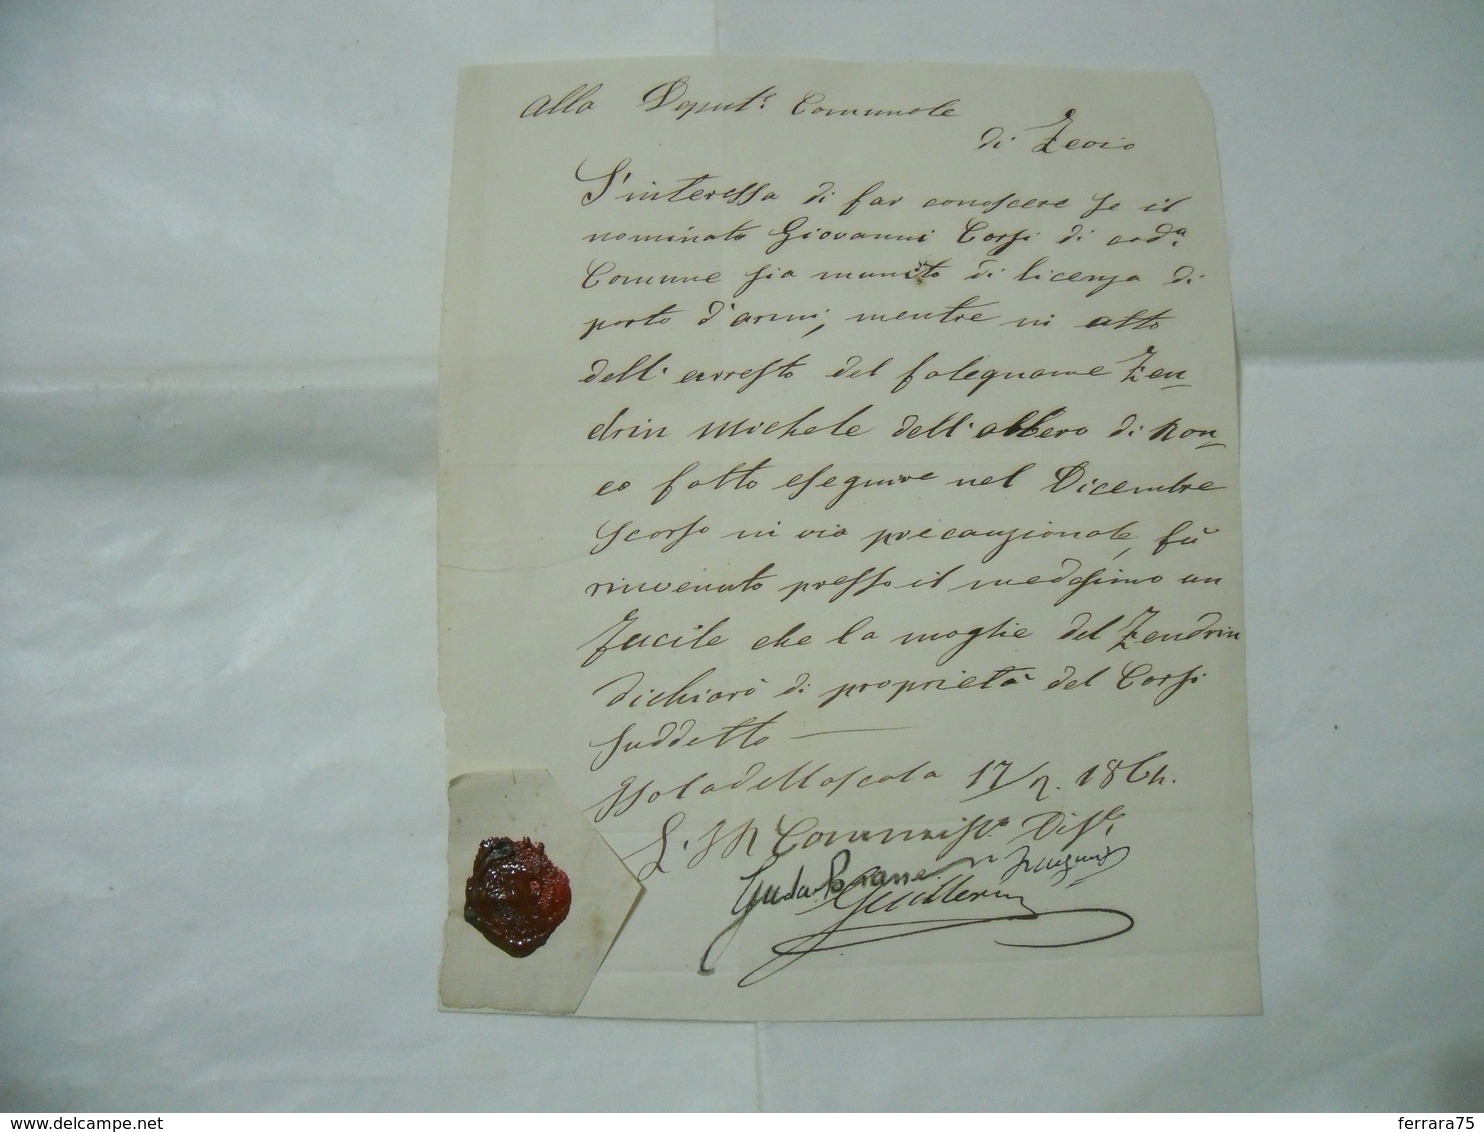 Alla Deput.e Comunale
di Zevio
S'interessa di far conoscere se il
nominato Giovanni Corsi di cod.a
Comune sia munito di licenza di
porto d'armi, mentre in atto
dell'arresto del falegname Zen-
drin Michele dell'albero di Ron-
co fatto eseguire nel Dicembre
scorso in via precauzionale, fù
rinvenuto presso il medesimo un
fucile che la moglie del Zendrin
dichiarò di proprietà del Corsi
suddetto
Isola della Scala 17/2. 1864.
Commiss.o Dis.e
ferrara75